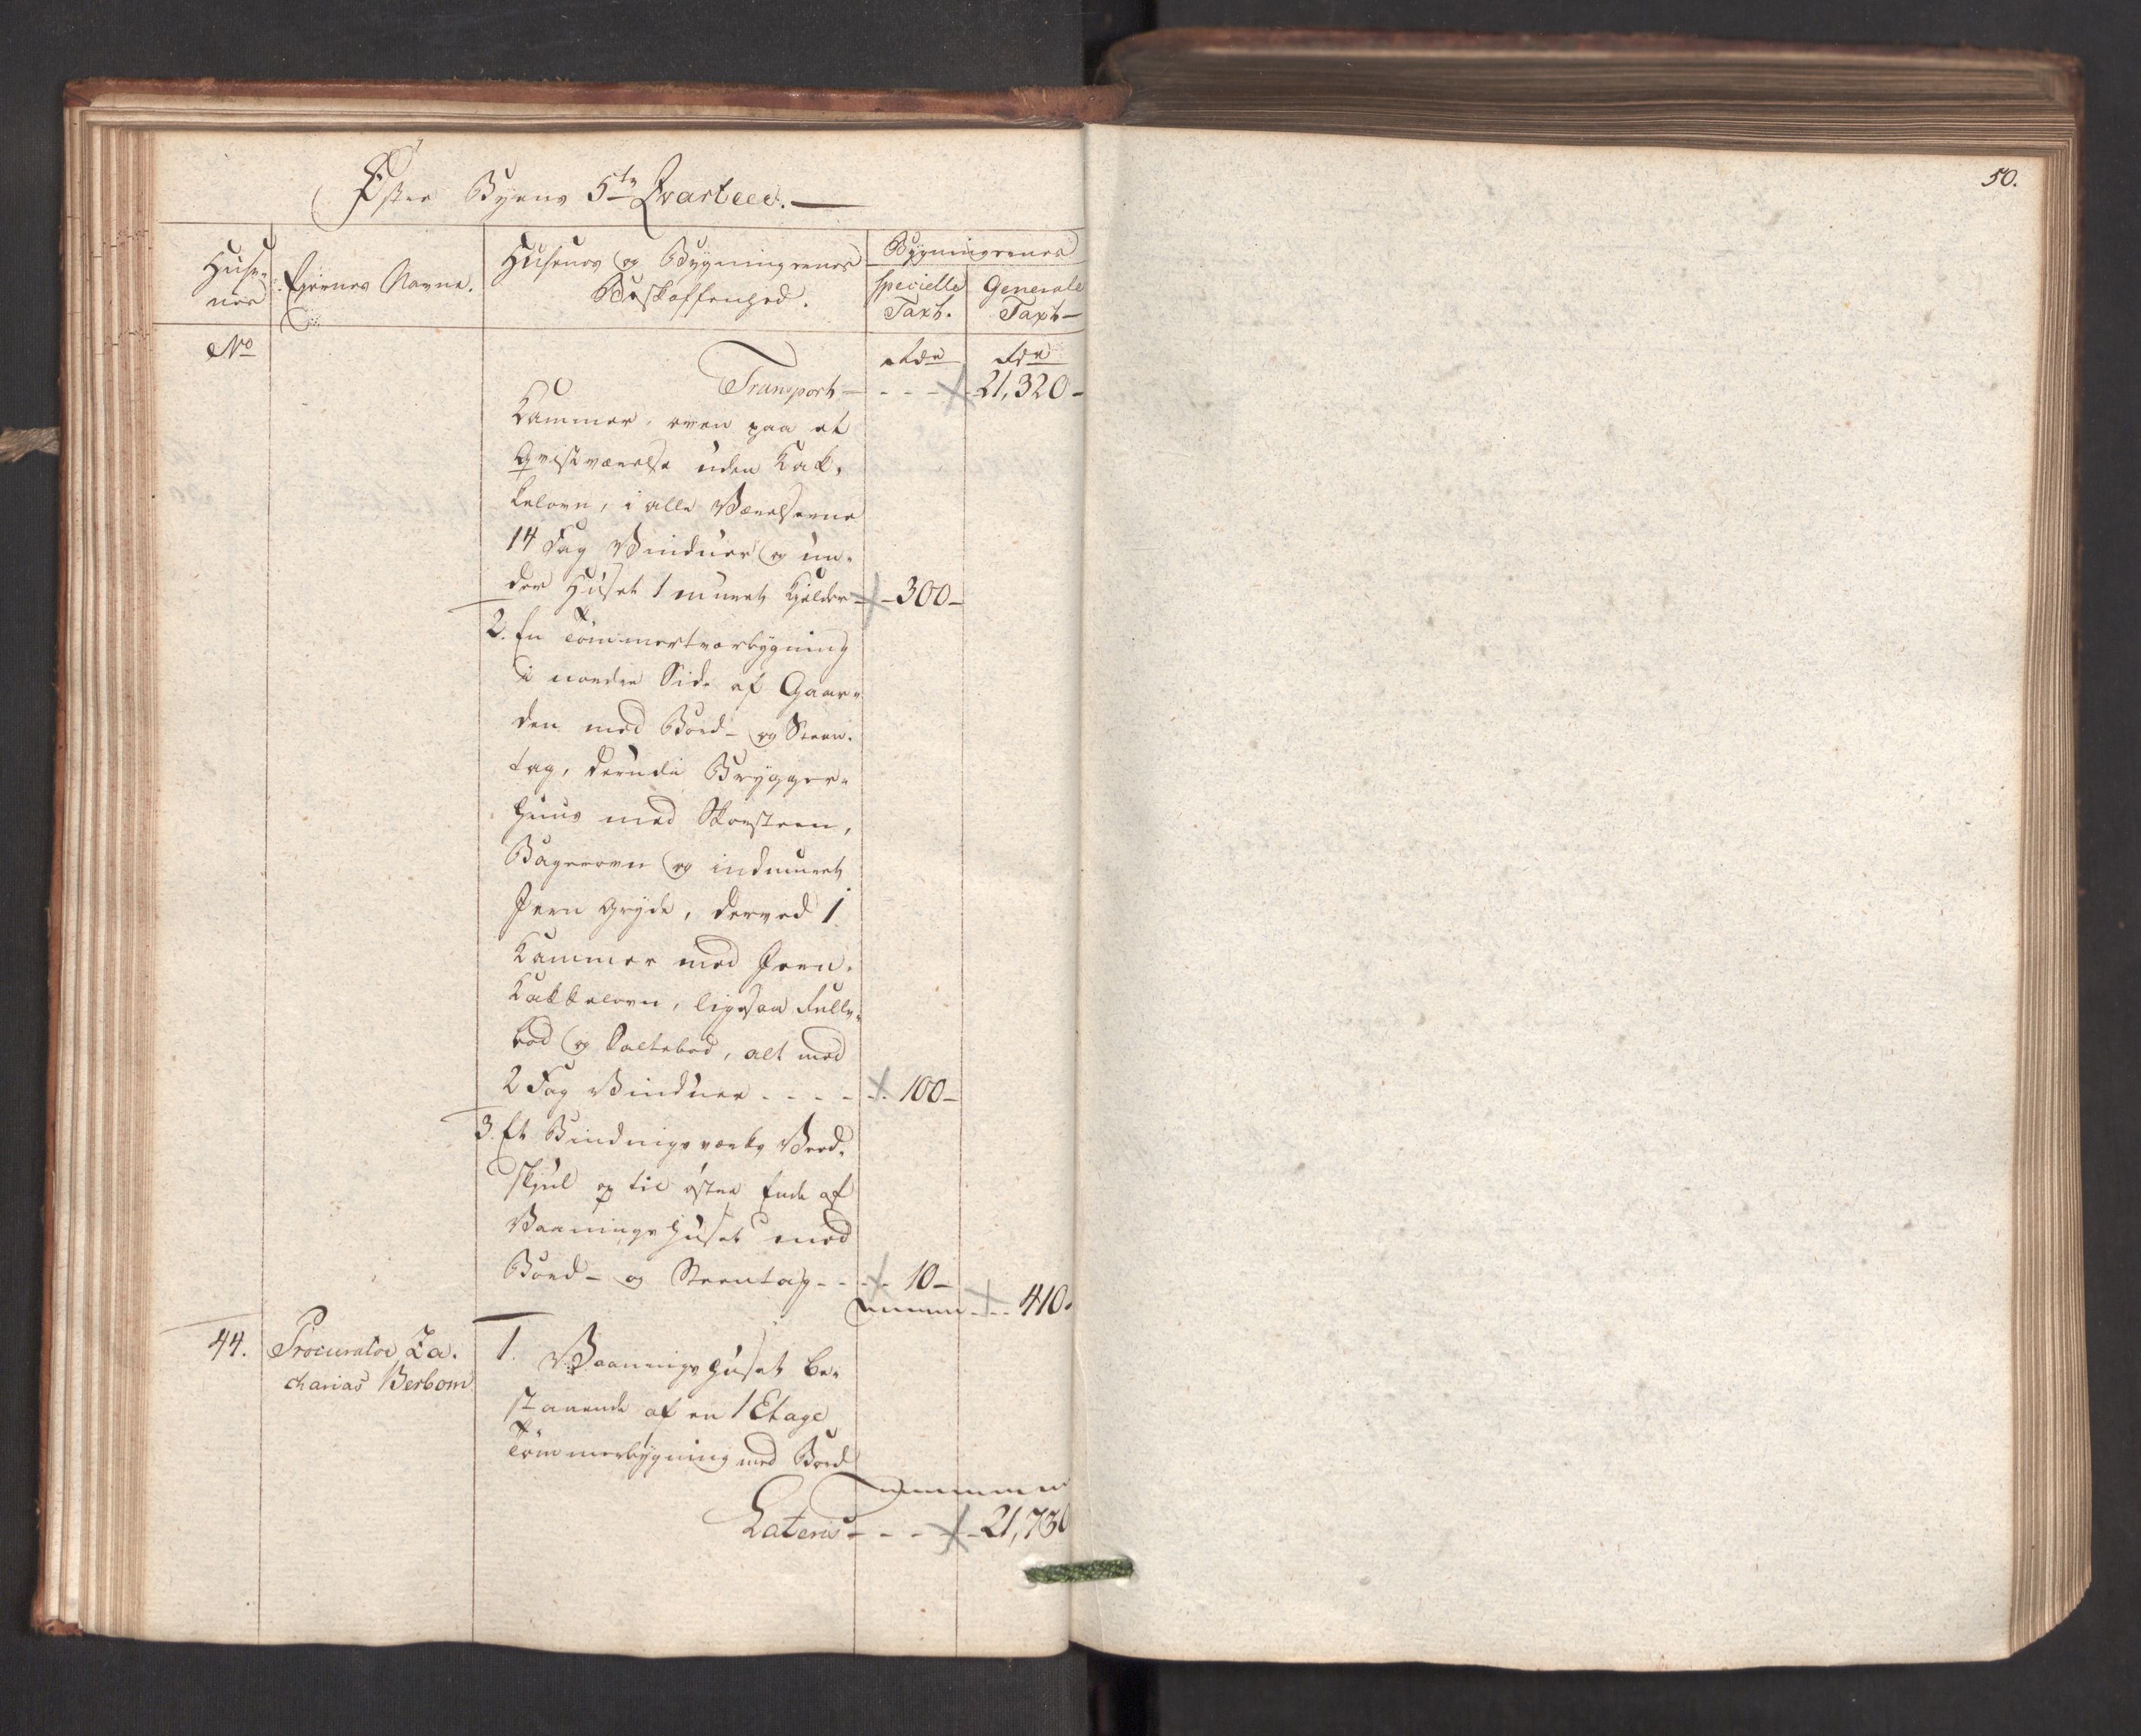 Øster Byens 5te Qvarteer.
50.
Huse-
nes
Eiernes Navne.
Husenes og Bygningernes
Beskaffenhed.
Bygningernes
specielle
Taxt.
Generale
Taxt
No
Transport - - - 21,320 -
Kammer, oven paa et
Qvistværelse uden Kak-
kelovn, i alle Værelserne
14 Fag Vinduer og un-
der Huset 1 muret Kjelder - 300 -
2. En Tømmertværbygning
i nordre Side af Gaar-
den med Bord- og Steen-
tag, derudi Brygger-
huus med Skorsteen,
Bagerovn og indmuret
Jern Gryde, derved 1
Kammer med Jern-
Kakkelovn, ligesaa Rulle-
bod og Saltebod, alt med
2 Fag Vinduer - - - - 100 -
3. Et Bindingsværks Veed-
skjul op til østre Ende af
Vaaningshuset med
Bord- og Steentag - - - 10 -
410.
44. Procurator Za-
charias Berbom
1. Vaaningshuset be-
staaende af en 1 Etage
Tømmerbygning med Bord
Lateris - - - 21,730